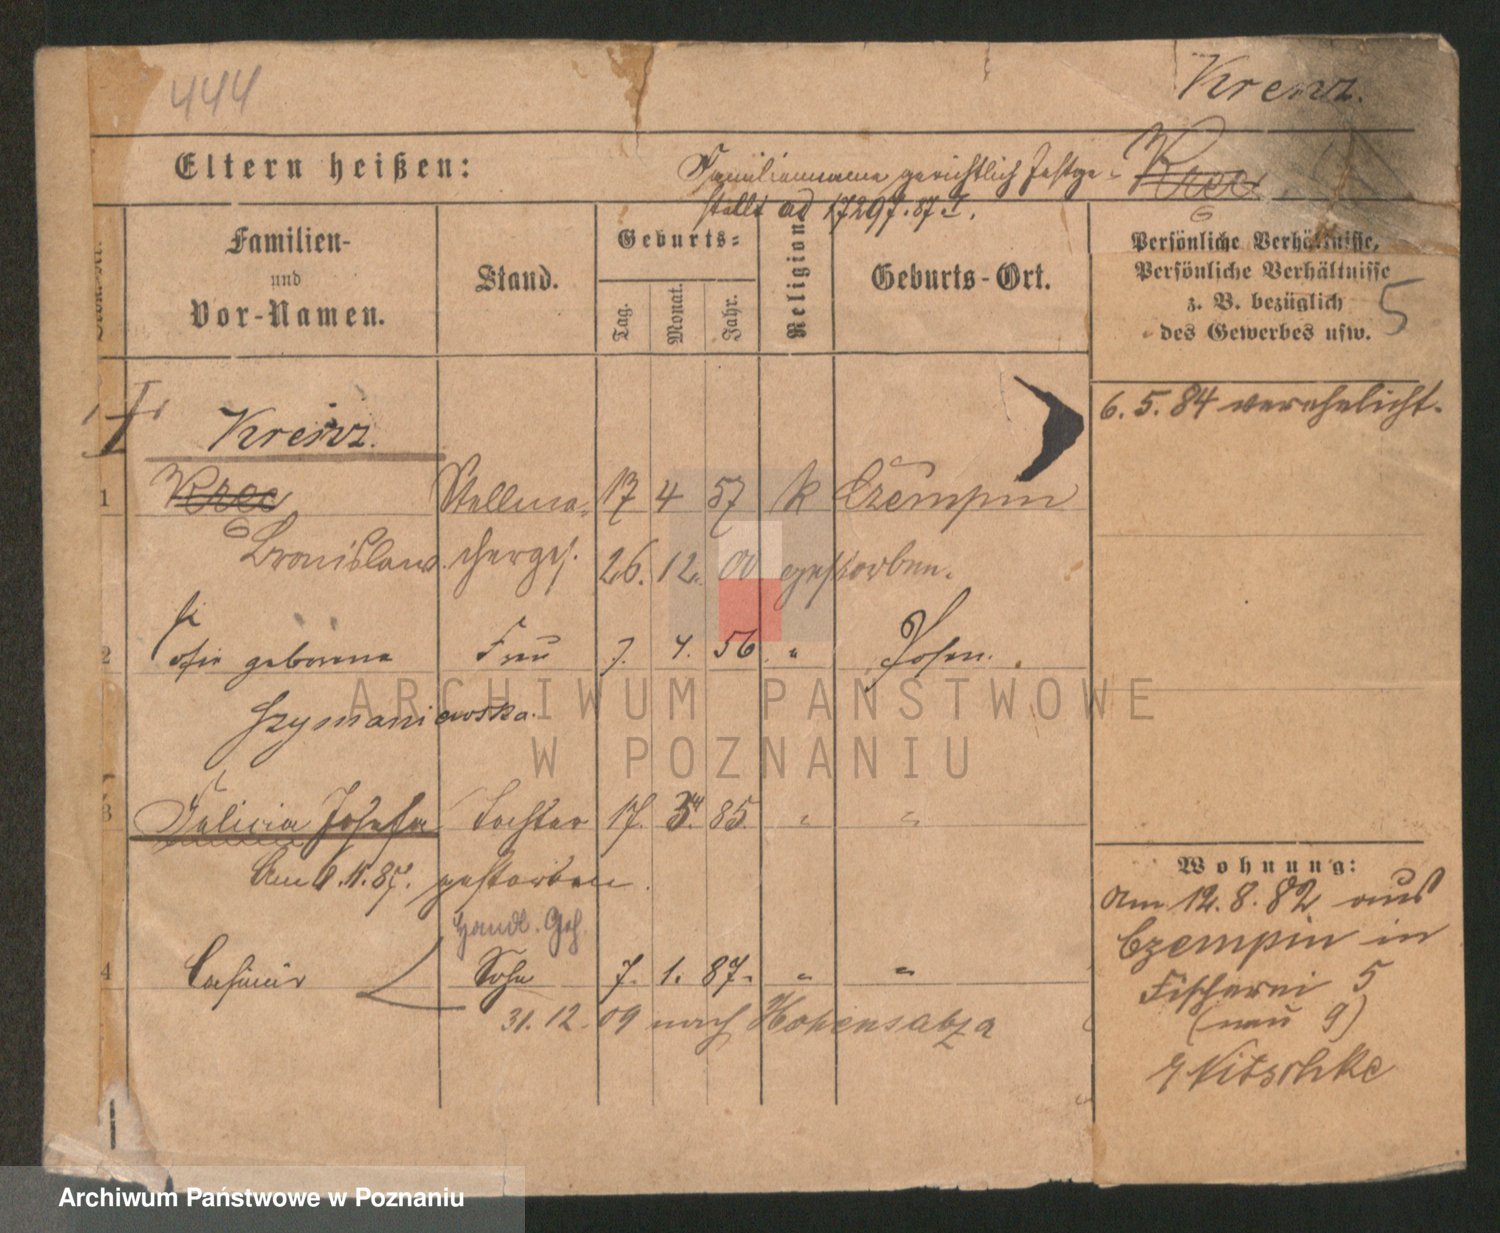 444
Krenz.
Eltern heißen:
Familienname gerichtlich Festge-
stellt ad 17297.87 I.
Kroc
Familien-
und
Vor-Namen.
Stand.
Geburts-
Tag.
Monat.
Jahr.
Religion
Geburts-Ort.
Persönliche Verhältnisse,
Persönliche Verhältnisse
z. B. bezüglich
des Gewerbes usw.
5
6. 5. 84 verehelicht.
Krenz.
1 Kroc Stellma- 17 4 57 k Czempin
Bronislaw. cherges. 26. 12. 00 gestorben.
2 geborene Frau 7. 4. 56 " Posen.
Szymaniewska.
3 Felicia Josefa Tochter 17. 3. 85. " "
Am 9. 11. 87. gestorben.
Handl. Geh.
4 Casimir Sohn 7. 1. 87. " "
31. 12. 09 nach Hohensalza
Wohnung:
am 12. 8. 82 aus
Czempin in
Fischerei 5
(neu 9)
Nitschke
ARCHIWUM PAŃSTWOWE
W POZNANIU
Archiwum Państwowe w Poznaniu